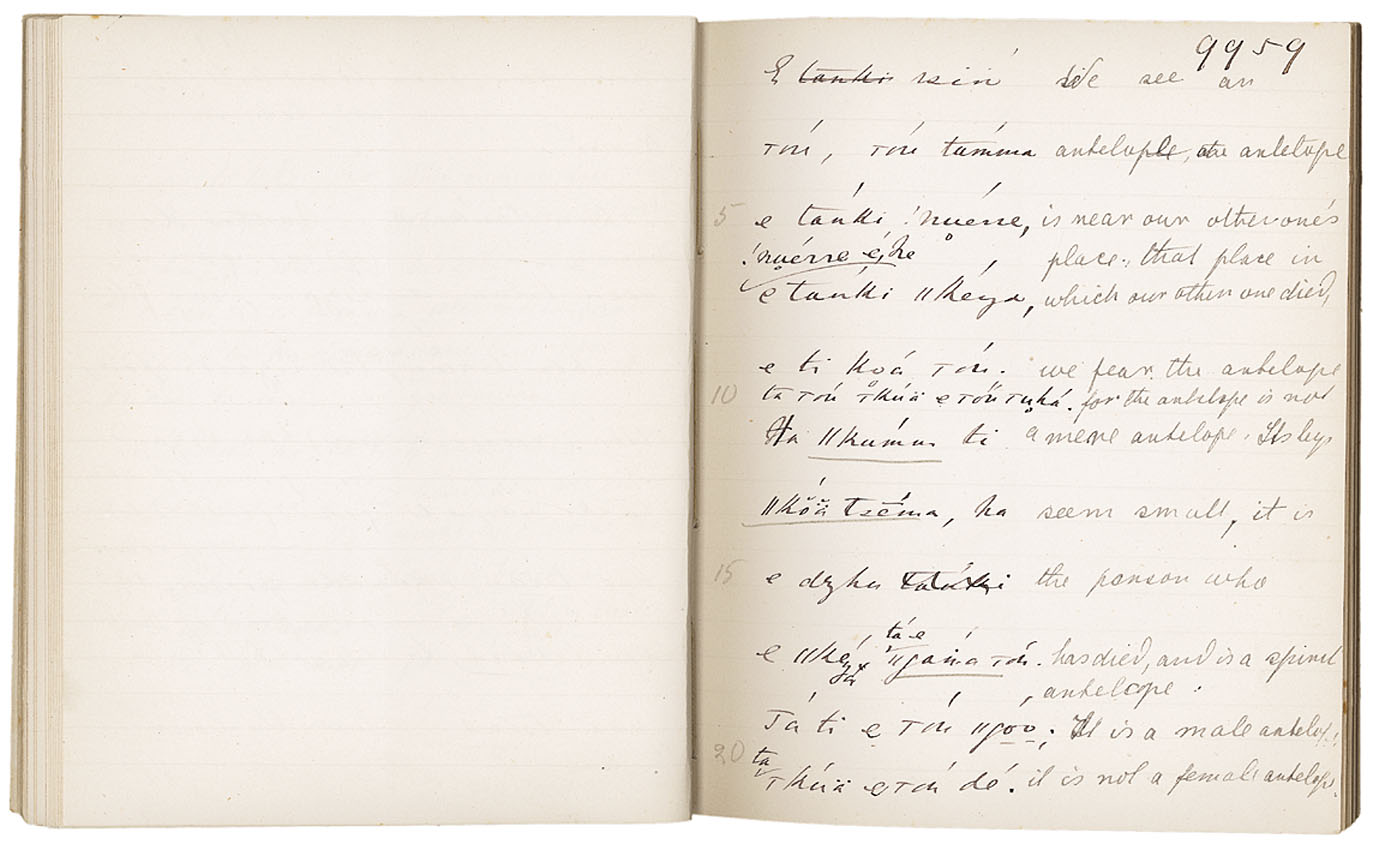 9959
E tanki ssin We see an
τóń, τóń támma antelople, the antelope
5 e tańki !nuérre, is near our other one's
!nuérre é, he place, that place in
e tańki ǁkéya, which our other one died,
e ti koá τóń. we fear the antelope
10 ta τóń τkúä e τóń τuhá. for the antelope is not
Ha ǁkumm ti a mere antelope. Its legs
ǁkŏä tzēma, ha seem small, it is
15 e dzhu tańki the person who
tá e
e ǁkéya ǁgańa τóń. has died, and is a spirit
antelope.
Tá ti e τóń ǁgoo; It is a male antelope;
20 ta
τkúä e τóń dé. it is not a female antelope.